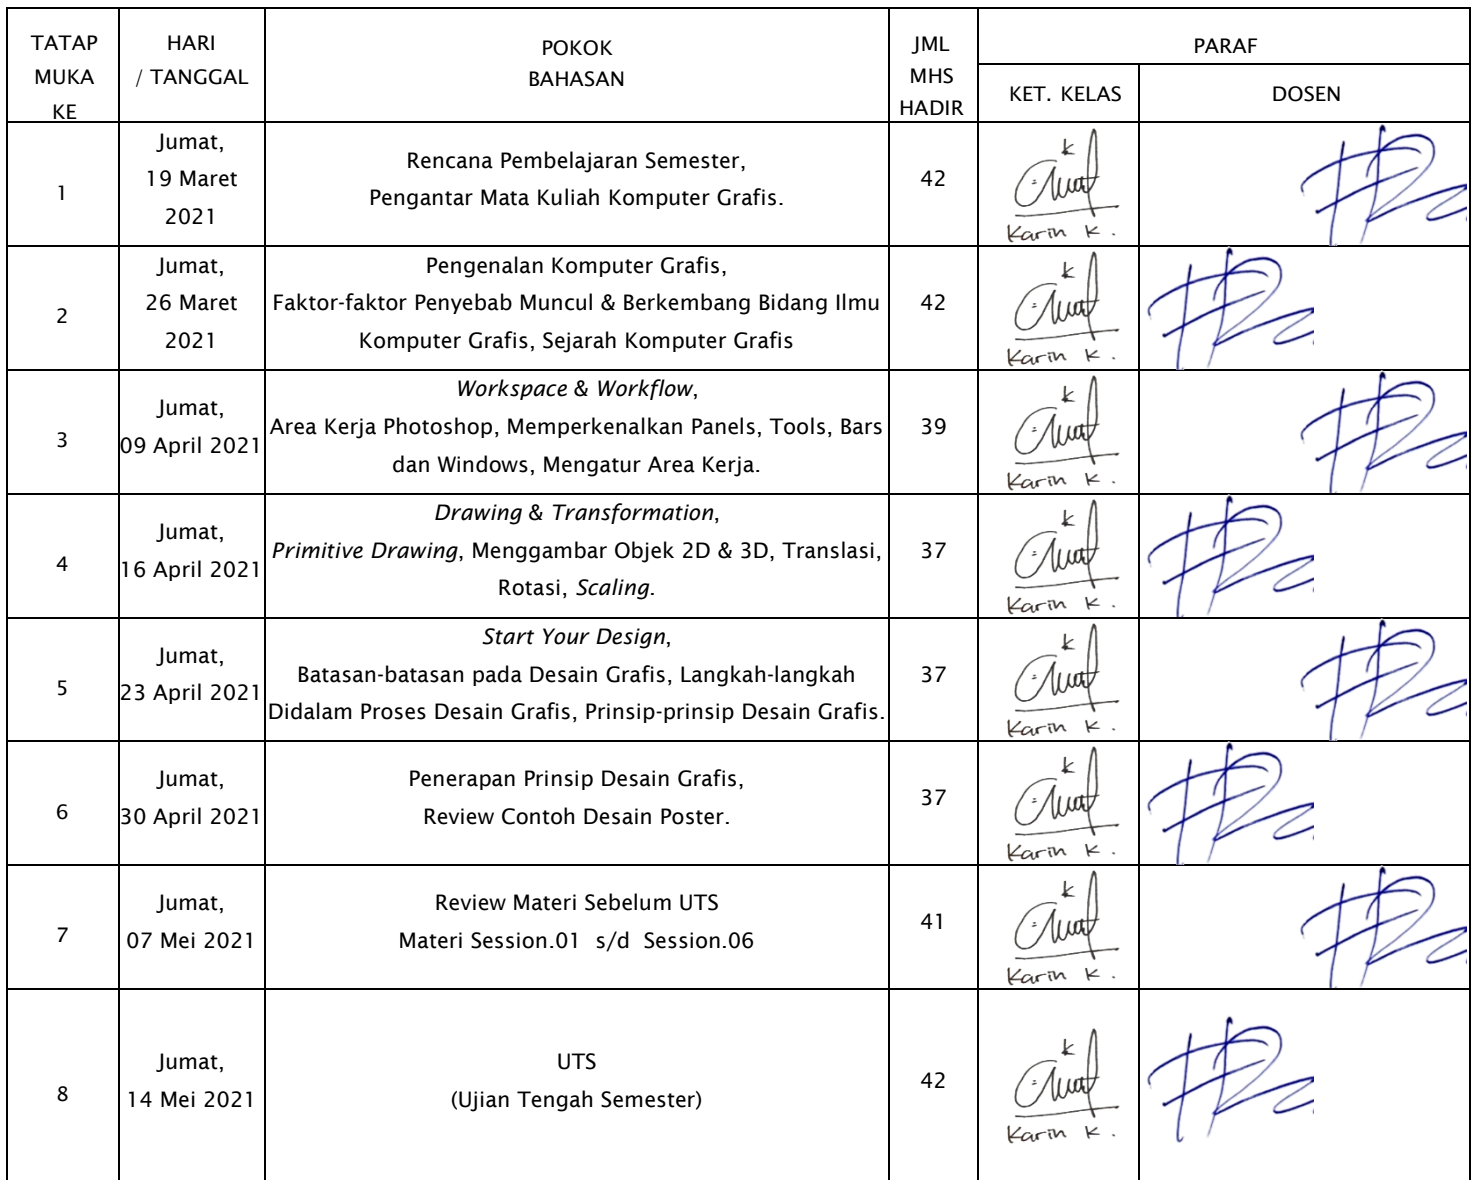 TATAP
MUKA
KE
HARI
/ TANGGAL
POKOK
BAHASAN
JML
MHS
HADIR
PARAF
KET. KELAS
DOSEN
1
Jumat,
19 Maret
2021
Rencana Pembelajaran Semester,
Pengantar Mata Kuliah Komputer Grafis.
42
Karin K.
2
Jumat,
26 Maret
2021
Pengenalan Komputer Grafis,
Faktor-faktor Penyebab Muncul & Berkembang Bidang Ilmu
Komputer Grafis, Sejarah Komputer Grafis
42
Karin K.
3
Jumat,
09 April 2021
Workspace & Workflow,
Area Kerja Photoshop, Memperkenalkan Panels, Tools, Bars
dan Windows, Mengatur Area Kerja.
39
Karin K.
4
Jumat,
16 April 2021
Drawing & Transformation,
Primitive Drawing, Menggambar Objek 2D & 3D, Translasi,
Rotasi, Scaling.
37
Karin K.
5
Jumat,
23 April 2021
Start Your Design,
Batasan-batasan pada Desain Grafis, Langkah-langkah
Didalam Proses Desain Grafis, Prinsip-prinsip Desain Grafis.
37
Karin K.
6
Jumat,
30 April 2021
Penerapan Prinsip Desain Grafis,
Review Contoh Desain Poster.
37
Karin K.
7
Jumat,
07 Mei 2021
Review Materi Sebelum UTS
Materi Session.01 s/d Session.06
41
Karin K.
8
Jumat,
14 Mei 2021
UTS
(Ujian Tengah Semester)
42
Karin K.